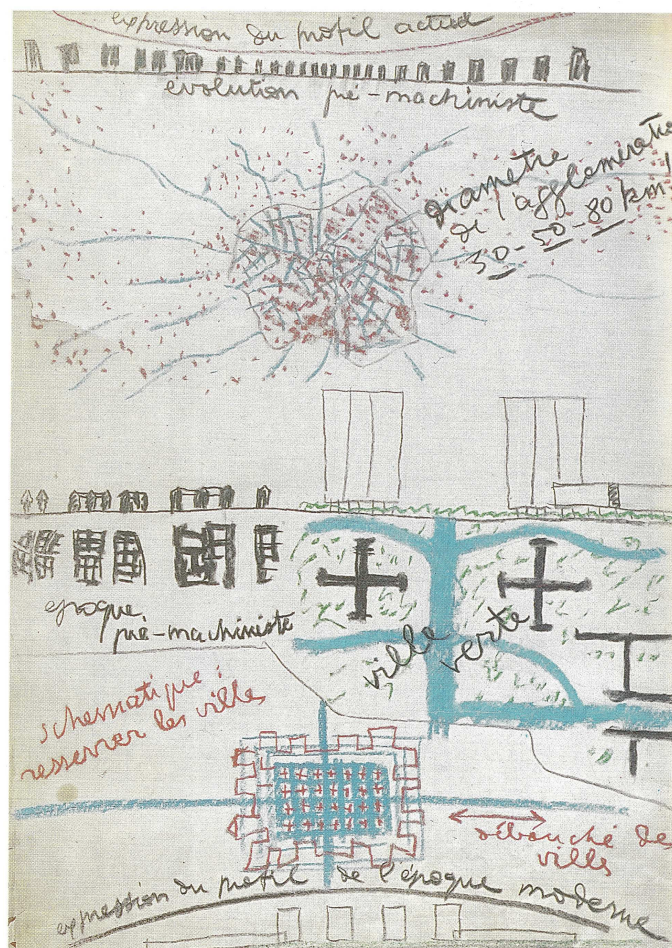 expression du profil actuel
évolution pré-machiniste
diamètre
de l'agglomération
30-50-80 km
époque
pré-machiniste
ville
verte
schématique :
resserrer les villes
débouché des
villes
expression du profil de l'époque moderne